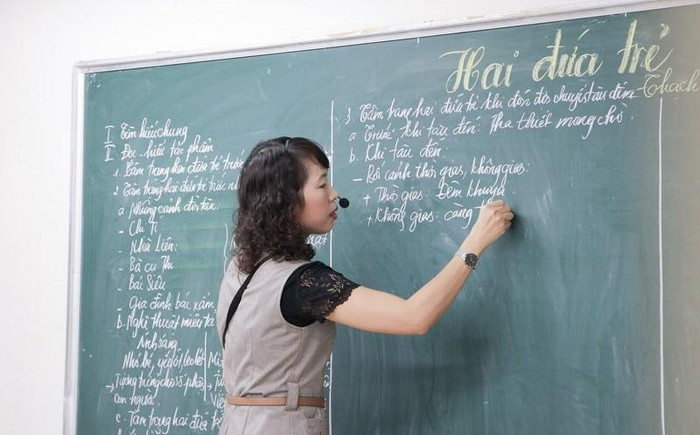 Hai đứa trẻ
- Thạch
I Tìm hiểu chung
II Đọc - hiểu tác phẩm
1. Tâm trạng hai đứa trẻ trước
2. Tâm trạng hai đứa trẻ trước
a. Những cảnh đời tàn
- Chị Tí
Nhà Liên:
- Bà cụ Thi
- Bác Siêu
- Gia đình bác xẩm
b. Nghệ thuật miêu tả
Ánh sáng
Nhỏ bé, yếu ớt
→ Tượng trưng cho số phận
con người
c. Tâm trạng hai đứa trẻ
3. Tâm trạng hai đứa trẻ khi đón đợi chuyến tàu đêm
a. Trước khi tàu đến: Tha thiết mong chờ
b. Khi tàu đến
- Bối cảnh thời gian, không gian:
+ Thời gian: Đêm khuya
+ Không gian: càng